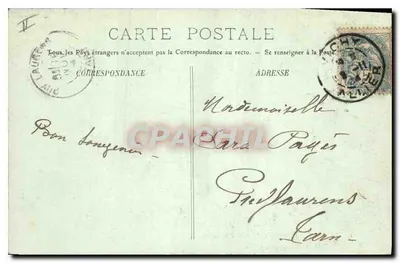 II
CARTE POSTALE
Tous les Pays étrangers n'acceptent pas la Correspondance au recto. — Se renseigner à la Poste
CORRESPONDANCE
ADRESSE
PUYLAURENS
VICHY
ALLIER
Mademoiselle
Bon
Sara Pagès
CPAPHIL
Puylaurens
Tarn